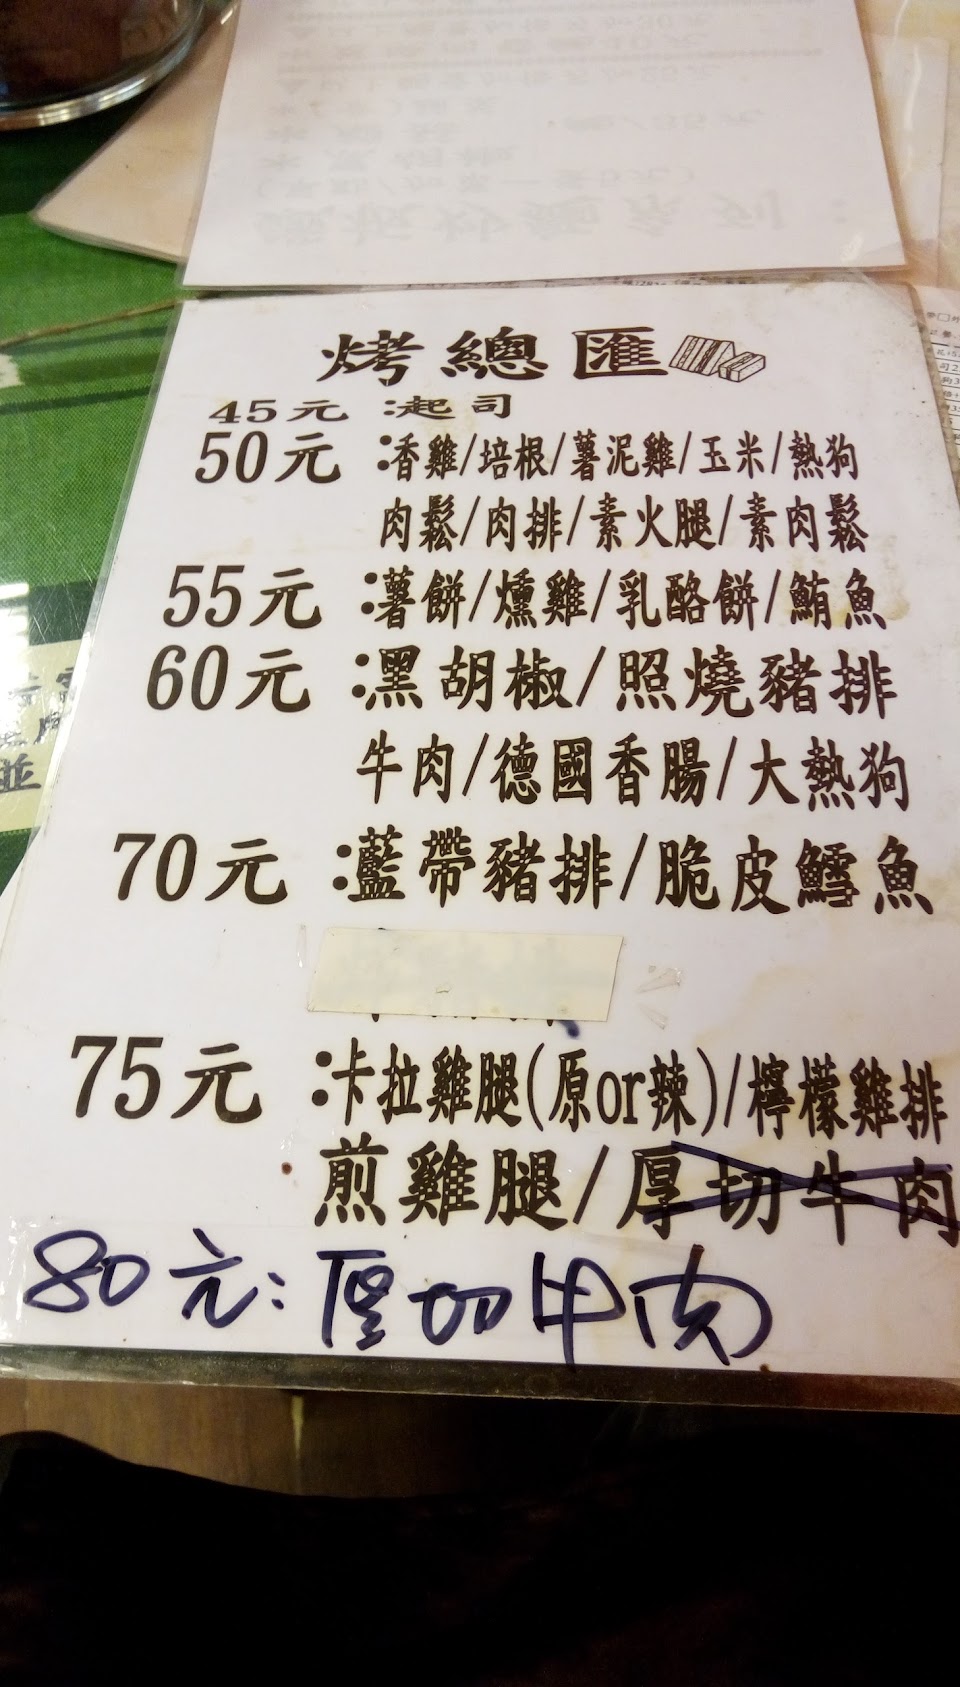 烤總匯
45元:起司
50元:香雞/培根/薯泥雞/玉米/熱狗
肉鬆/肉排/素火腿/素肉鬆
55元:薯餅/燻雞/乳酪餅/鮪魚
60元:黑胡椒/照燒豬排
牛肉/德國香腸/大熱狗
70元:藍帶豬排/脆皮鱈魚
75元:卡拉雞腿(原or辣)/檸檬雞排
煎雞腿/厚切牛肉
80元:厚切牛肉